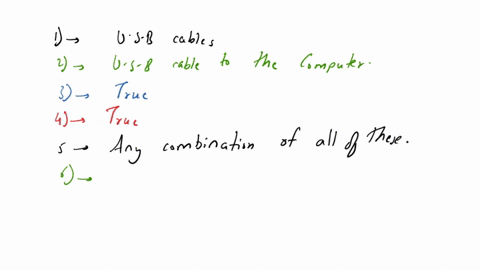 1) → U.S.B cables
2) → U.S.B cable to the Computer.
3) → True
4) → True
5 → Any combination of all of these.
6) →